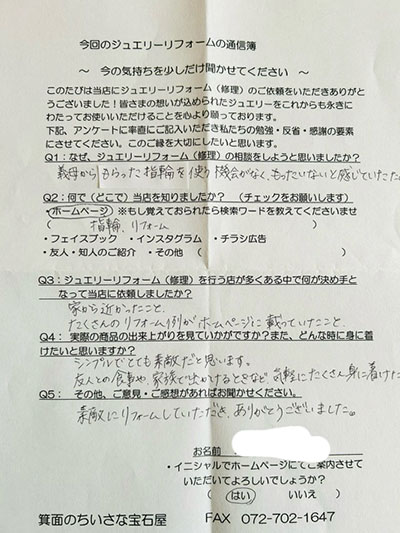 今回のジュエリーリフォームの通信簿
～ 今の気持ちを少しだけ聞かせてください ～
このたびは当店にジュエリーリフォーム（修理）のご依頼をいただきありがと
うございました！皆さまの想いが込められたジュエリーをこれからも永きに
わたってお使いいただけることを心より願っております。
下記、アンケートに率直にご記入いただき私たちの勉強・反省・感謝の要素
にさせてください。このご縁を大切にしたいと思います。
Q1：なぜ、ジュエリーリフォーム（修理）の相談をしようと思いましたか？
義母からもらった指輪を使う機会がなく、もったいないと感じていたため
Q2：何で（どこで）当店を知りましたか？　（チェックをお願いします）
・ホームページ　※もし覚えておられたら検索ワードを教えてくださいませ
（　指輪、リフォーム　）
・フェイスブック　・インスタグラム　・チラシ広告
・友人・知人のご紹介　・その他（　）
Q3：ジュエリーリフォーム（修理）を行う店が多くある中で何が決め手と
なって当店に依頼しましたか？
家から近かったこと、
たくさんのリフォーム例がホームページに載っていたこと、
Q4：実際の商品の出来上がりを見ていかがですか？また、どんな時に身に着
けたいと思いますか？
シンプルでとても素敵だと思います。
友人との食事や、家族で出かけるときなど気軽にたくさん身に着けた
Q5：　その他、ご意見・ご感想があればお聞かせください。
素敵にリフォームしていただき、ありがとうございました。
お名前
・イニシャルでホームページにてご案内させて
いただいてよろしいでしょうか？
（　はい　　いいえ　）
箕面のちいさな宝石屋　　FAX 072-702-1647